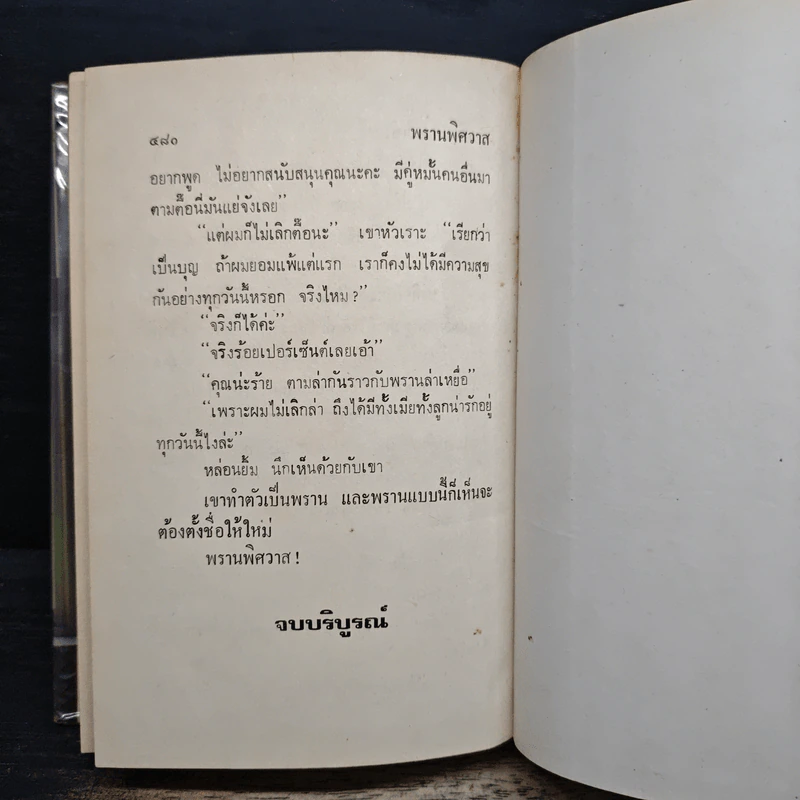 ๔๘๑ พรานพิศวาส
อยากพูด ไม่อยากสนับสนุนคุณนะคะ มีคู่หมั้นคนอื่นมา
ตามตื๊อนี่มันแย่จังเลย”
“แต่ผมก็ไม่เลิกตื๊อนะ” เขาหัวเราะ “เรียกว่า
เป็นบุญ ถ้าผมยอมแพ้แต่แรก เราก็คงไม่ได้มีความสุข
กันอย่างทุกวันนี้หรอก จริงไหม?”
“จริงก็ได้ค่ะ”
“จริงร้อยเปอร์เซ็นต์เลยเอ้า”
“คุณน่ะร้าย ตามล่ากันราวกับพรานล่าเหยื่อ”
“เพราะผมไม่เลิกล่า ถึงได้มีทั้งเมียทั้งลูกน่ารักอยู่
ทุกวันนี้ไงล่ะ”
หล่อนยิ้ม นึกเห็นด้วยกับเขา
เขาทำตัวเป็นพราน และพรานแบบนี้ก็เห็นจะ
ต้องตั้งชื่อให้ใหม่
พรานพิศวาส!
จบบริบูรณ์